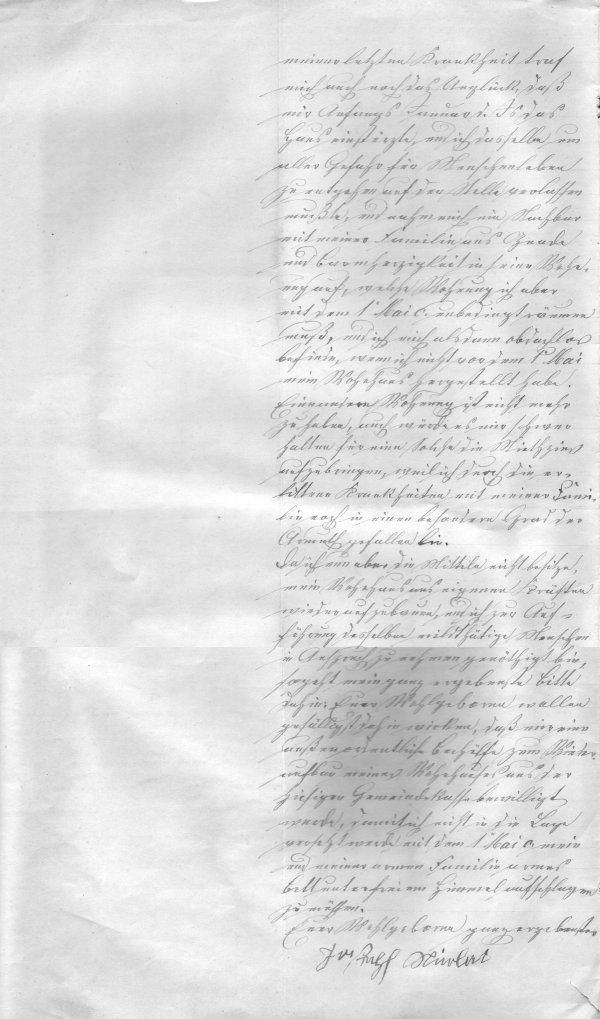 meiner letzten Krankheit traf
mich auch noch das Unglück, daß
mir Anfangs Januar d. Js das
Haus einstürzte, und ich dasselbe um
aller Gefahr für Menschenleben
zu entgehen auf der Stelle verlassen
mußte, und nahm mich ein Nachbar
mit meiner Familie aus Gnade
und Barmherzigkeit in seine Wohn-
ung auf, welche Wohnung ich aber
mit dem 1 Mai c. unbedingt räumen
muß, und ich mich alsdann obdachlos
befinde, wenn ich nicht vor dem 1 Mai
mein Wohnhaus hergestellt habe.
Eine andere Wohnung ist nicht mehr
zu haben, auch würde es mir schwer
halten für eine solche die Miethzins
aufzubringen, weil ich durch die er-
littene Krankheiten mit meiner Fami-
lie noch in einen besondern Grad der
Armuth gefallen bin.
Da ich nun aber die Mitteln nicht besitze,
mein Wohnhaus aus eigenen Kräften
wieder aufzubauen, und ich zur Auf-
führung desselben mildthätige Menschen
in Anspruch zu nehmen genöthigt bin,
so geht mein ganz ergebenste Bitte
dahin: Euer Wohlgeboren wollen
gefälligst dahin wirken, daß mir eine
außerordentliche Beihilfe zum Wieder-
aufbau meines Wohnhauses aus der
hiesigen Gemeindekasse bewilligt
werde, damit ich nicht in die Lage
versetzt werde mit dem 1 Mai c. mein
und meiner armen Familie armes
Bett unter freiem Himmel aufschlagen
zu müssen.
Euer Wohlgeboren ganz ergebenster
Joseph Nicolai